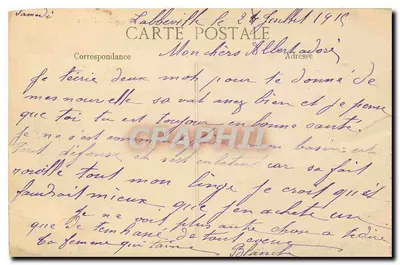 Samedi
Labbeville le 24 Juillet 191
CARTE POSTALE
Correspondance
Adresse
Mon chers Albert adoré
Je t'écrie deux mot pour te donné de
mes nouvelle sa vat assez bien et je pense
que toi tu est toujour en bonne santé
Je ne s'est comment
tout car sa fait
rouillé tout mon linge je crois qu'il
faudrait mieux que j'en achete un
Je ne voit plus autre chose a te dire
que de t'embrassé de tout coeur
Ta femme qui t'aime Blanche
CPAPHIL